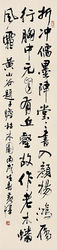 折沖儒墨陣堂堂書入顏楊鴻雁
行胸中元自有丘壑故作老木蟠
風霜 黃山谷題子瞻枯木圖 丙戌